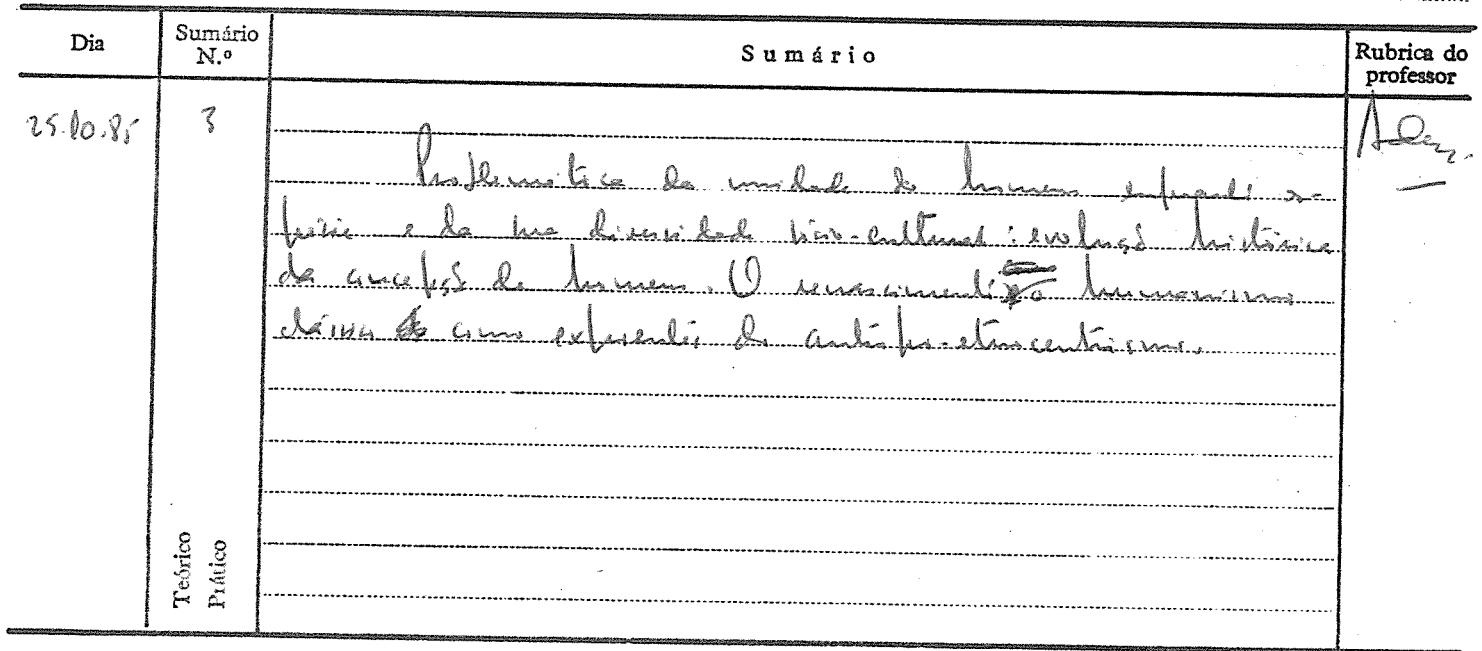 Dia
Sumário
N.º
Sumário
Rubrica do
professor
25.10.85
3
Problemática da unidade do homem enquanto es-
pécie e da sua diversidade sócio-cultural: evolução histórica
da concepção de homem. O renascimento e o humanismo
clássico como expoentes do antropo-etnocentrismo.
Teórico
Prático